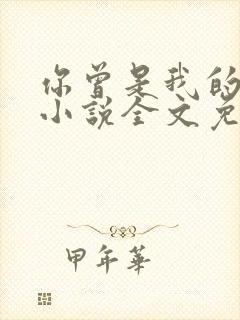 你曾是我的
小说全文免
甲年华